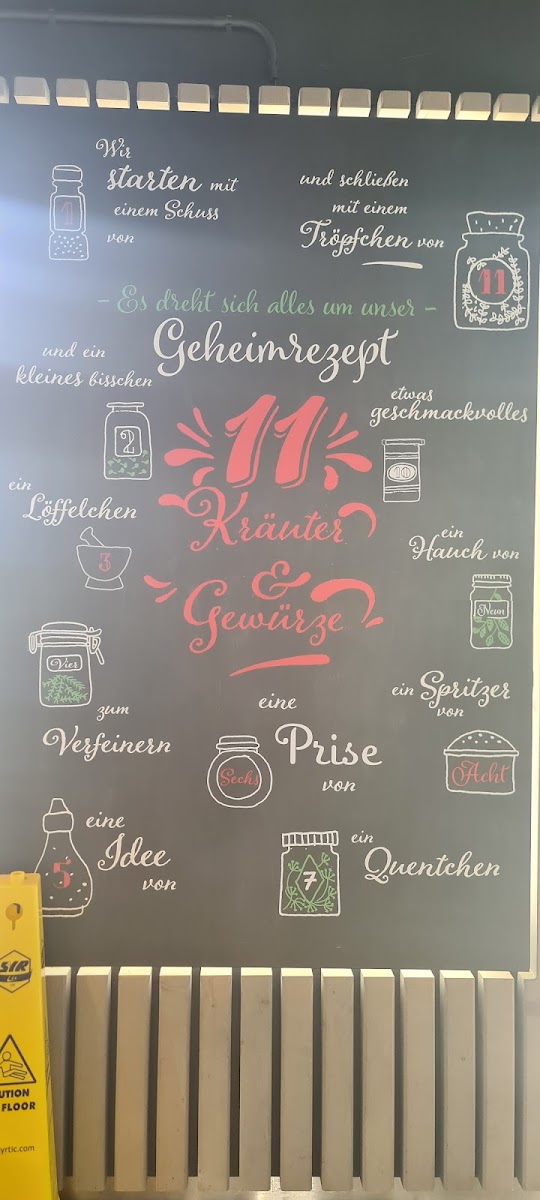 Wir
starten mit
einem Schuss
von
1
und schließen
mit einem
Tröpfchen von
11
- Es dreht sich alles um unser -
Geheimrezept
11
Kräuter
&
Gewürze
und ein
kleines bisschen
2
ein
Löffelchen
3
Vier
zum
Verfeinern
5
eine
Idee
von
eine
Prise
von
Sechs
7
ein
Quentchen
ein Spritzer
von
Acht
ein
Hauch von
Neun
etwas
geschmackvolles
10
SYR
UTION
FLOOR
yrtic.com